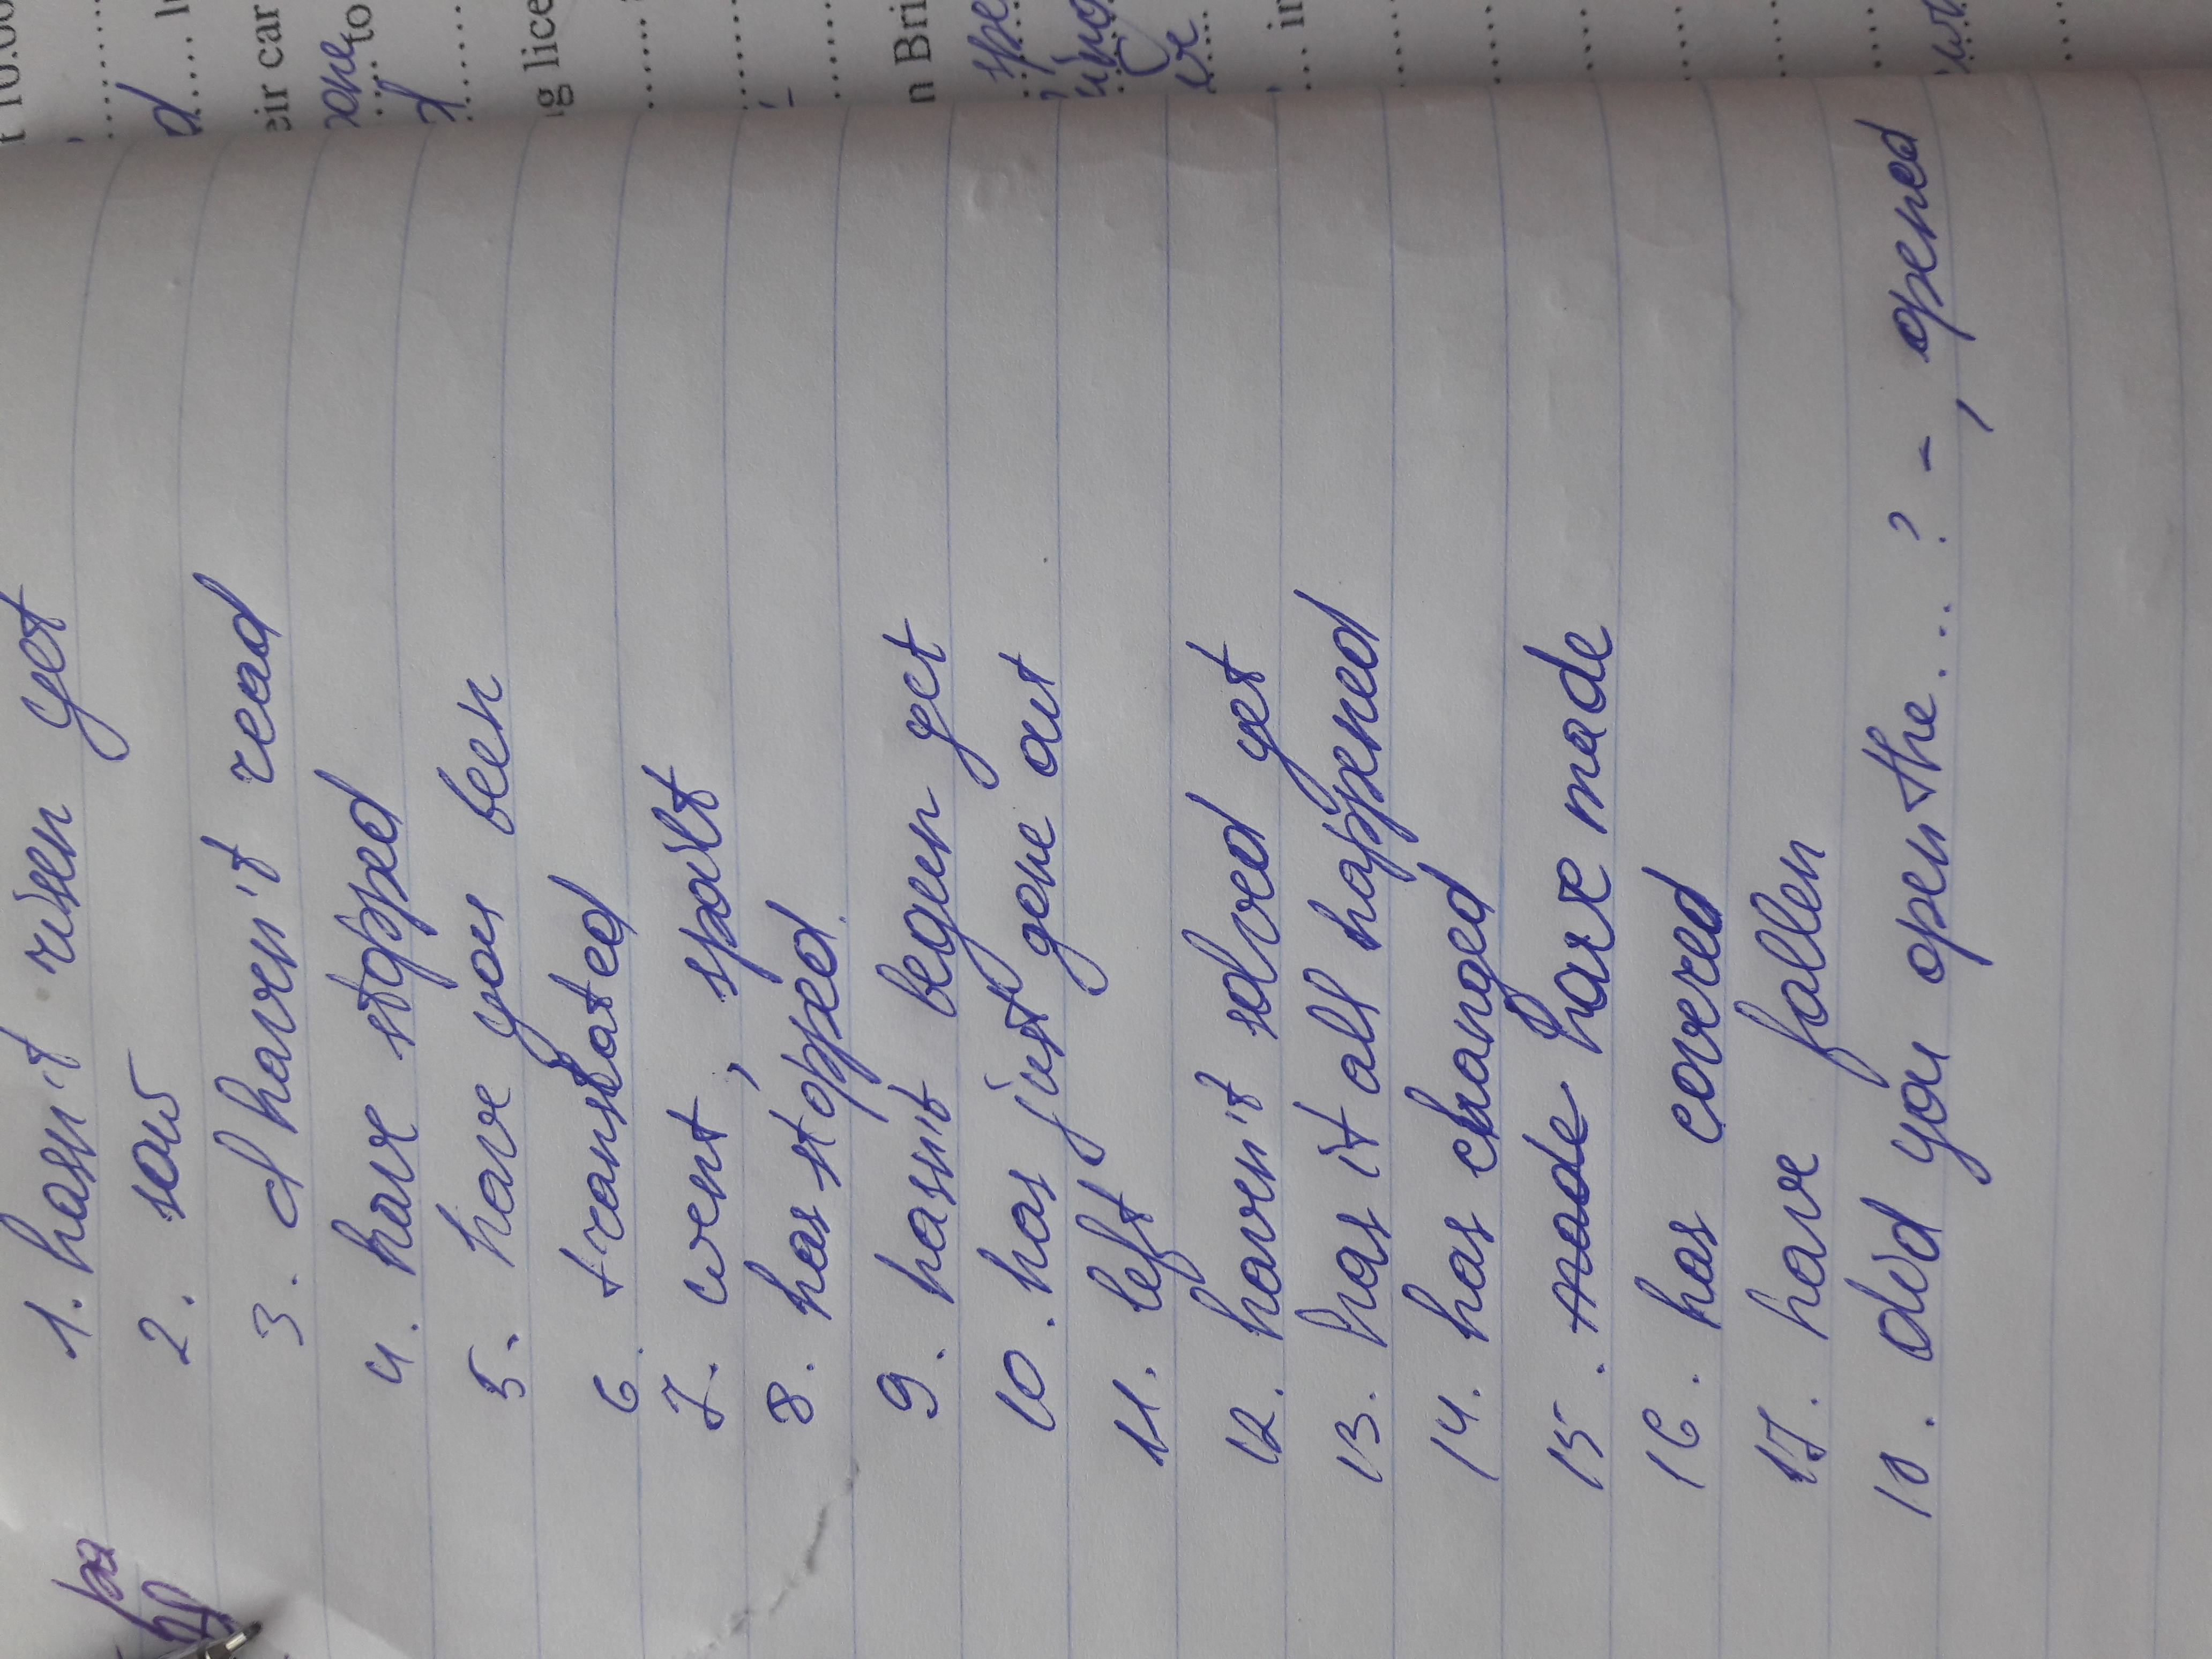 1. hasn't risen yet
2. saw
3. I haven't read
4. have stopped
5. have you been
6. translated
7. went, spoilt
8. has stopped
9. hasn't begun yet
10. has just gone out
11. left
12. haven't solved yet
13. has it all happened
14. has changed
15. made have made
16. has covered
17. have fallen
18. did you open the...? - , opened
10.00
d
eir car
to
d
g lice
n Bri
spe
in